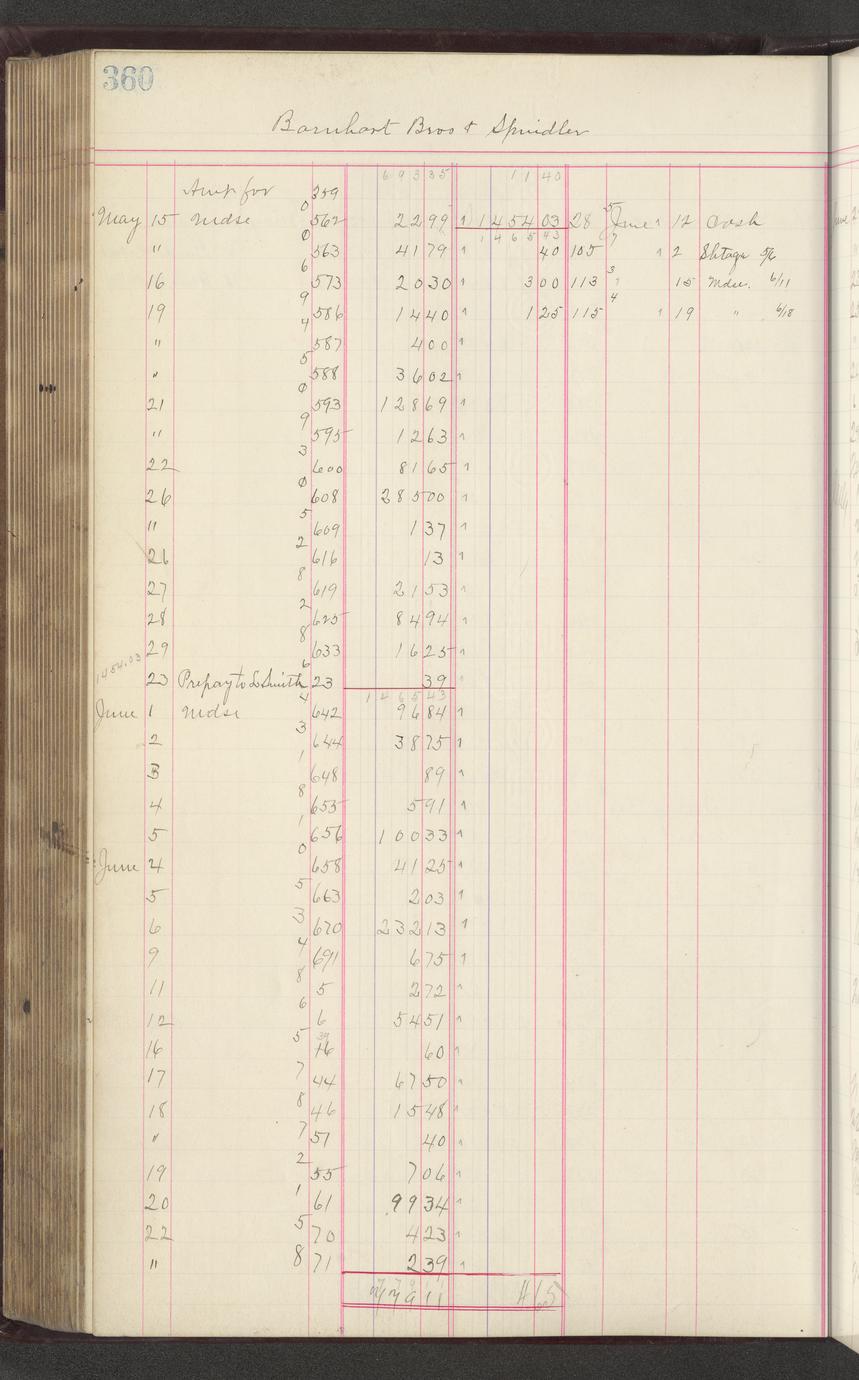 360
Barnhart Bros & Spindler
69335 1140
Amt for 359
May 15 Mdse 0 562 2299 1 145403 28 5 June 1 12 Cash
" 0 563 4179 1 146543 40 105 7 1 2 Shtage 5/6
16 6 573 2030 1 300 113 3 1 15 Mdse. 6/11
19 9 586 1440 1 125 115 4 1 19 " 6/18
" 4 587 400 1
" 5 588 3602 1
21 0 593 12869 1
" 9 595 1263 1
22 3 600 8165 1
26 0 608 28500 1
" 5 609 137 1
26 2 616 13 1
27 8 619 2153 1
28 2 625 8494 1
29 8 633 1625 1
1454.03
23 Prepay to L Smith 6 23 39 1
146543
June 1 Mdse 4 642 9684 1
2 3 644 3875 1
3 1 648 89 1
4 8 655 591 1
5 1 656 10033 1
June 4 0 658 4125 1
5 5 663 203 1
6 3 670 23213 1
9 4 691 675 1
11 8 5 272 1
12 6 6 5451 1
16 5 16 60 1
17 7 44 6750 1
18 8 46 1548 1
" 7 51 40 1
19 2 55 706 1
20 1 61 9934 1
22 5 70 423 1
" 8 71 239 1